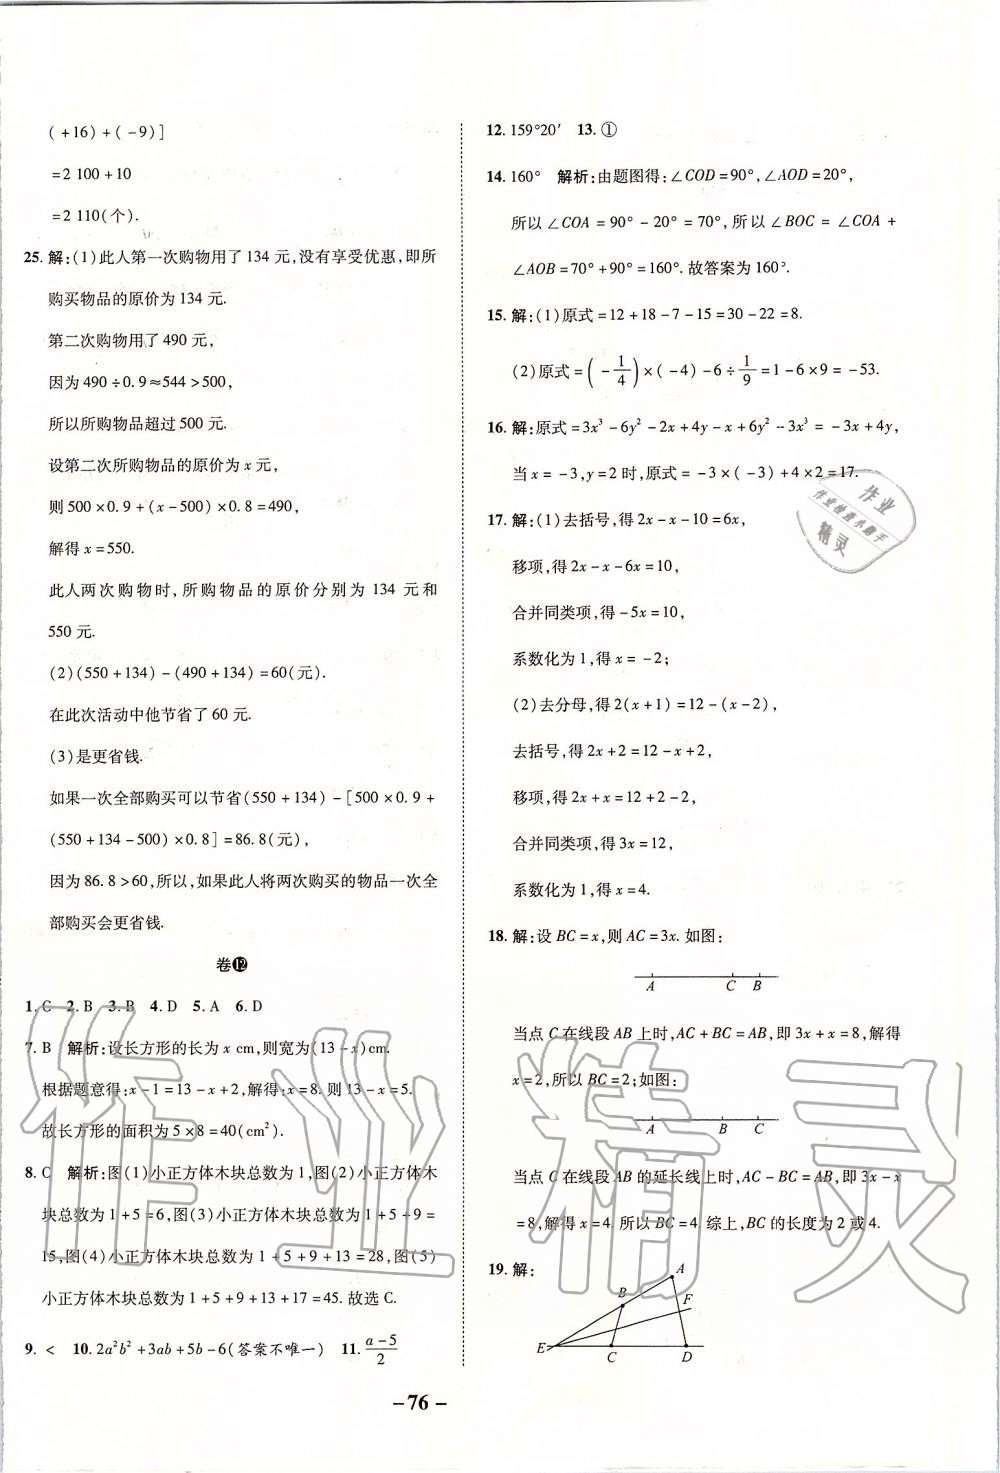 (+16)+(-9)]
=2 100+10
=2 110(个).
25. 解:(1)此人第一次购物用了 134 元,没有享受优惠,即所
购买物品的原价为 134 元.
第二次购物用了 490 元,
因为 490÷0.9≈544>500,
所以所购物品超过 500 元.
设第二次所购物品的原价为 x 元,
则 500×0.9+(x-500)×0.8=490,
解得 x=550.
此人两次购物时,所购物品的原价分别为 134 元和
550 元.
(2)(550+134)-(490+134)=60(元).
在此次活动中他节省了 60 元.
(3)是更省钱.
如果一次全部购买可以节省(550+134)-[500×0.9+
(550+134-500)×0.8]=86.8(元),
因为 86.8>60,所以,如果此人将两次购买的物品一次全
部购买会更省钱.
卷⓬
1. C 2. B 3. B 4. D 5. A 6. D
7. B 解析:设长方形的长为 x cm,则宽为(13-x)cm.
根据题意得:x-1=13-x+2,解得:x=8. 则 13-x=5.
故长方形的面积为 5×8=40(cm²).
8. C 解析:图(1)小正方体木块总数为 1,图(2)小正方体木
块总数为 1+5=6,图(3)小正方体木块总数为 1+5+9=
15,图(4)小正方体木块总数为 1+5+9+13=28,图(5)
小正方体木块总数为 1+5+9+13+17=45. 故选 C.
9. < 10. 2a²b²+3ab+5b-6(答案不唯一) 11. (a-5)/2
12. 159°20′ 13. ①
14. 160° 解析:由题图得:∠COD=90°,∠AOD=20°,
所以∠COA=90°-20°=70°,所以∠BOC=∠COA+
∠AOB=70°+90°=160°. 故答案为 160°.
15. 解:(1)原式=12+18-7-15=30-22=8.
(2)原式=(-1/4)×(-4)-6÷1/9=1-6×9=-53.
16. 解:原式=3x³-6y²-2x+4y-x+6y²-3x³=-3x+4y,
当 x=-3,y=2 时,原式=-3×(-3)+4×2=17.
17. 解:(1)去括号,得 2x-x-10=6x,
移项,得 2x-x-6x=10,
合并同类项,得-5x=10,
系数化为 1,得 x=-2;
(2)去分母,得 2(x+1)=12-(x-2),
去括号,得 2x+2=12-x+2,
移项,得 2x+x=12+2-2,
合并同类项,得 3x=12,
系数化为 1,得 x=4.
18. 解:设 BC=x,则 AC=3x. 如图:
A C B
当点 C 在线段 AB 上时,AC+BC=AB,即 3x+x=8,解得
x=2,所以 BC=2;如图:
A B C
当点 C 在线段 AB 的延长线上时,AC-BC=AB,即 3x-x
=8,解得 x=4. 所以 BC=4. 综上,BC 的长度为 2 或 4.
19. 解:
A
B
F
E C D
-76-
作业
作业检查小助手
精灵
作业精灵